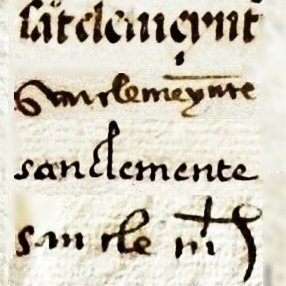 sãt clemeynt
San clemeynte
san clemente
san cle m̃